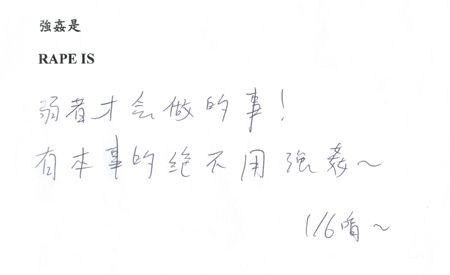 強姦是
RAPE IS
弱者才会做的事!
有本事的绝不用強姦~
1/6晴~